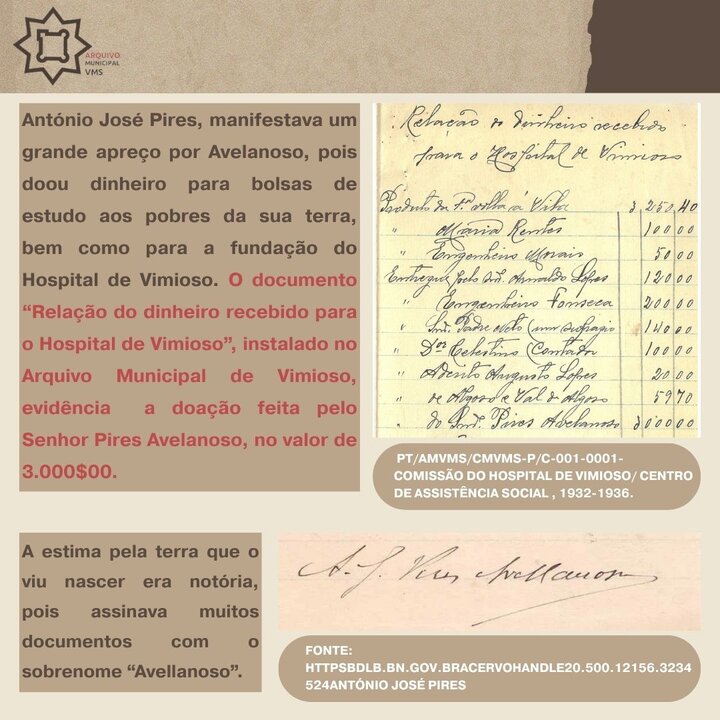 ARQUIVO
MUNICIPAL
VMS
António José Pires, manifestava um
grande apreço por Avelanoso, pois
doou dinheiro para bolsas de
estudo aos pobres da sua terra,
bem como para a fundação do
Hospital de Vimioso. O documento
“Relação do dinheiro recebido para
o Hospital de Vimioso”, instalado no
Arquivo Municipal de Vimioso,
evidência a doação feita pelo
Senhor Pires Avelanoso, no valor de
3.000$00.
Relação do dinheiro recebido
para o Hospital de Vimioso
Produto da 1ª volta á Vila 3,250,40
" Maria Rentes 100 00
" Engenheiro Morais 50 00
Entregue pelo Snr. Arnaldo Lopes 120 00
" Engenheiro Fonseca 200 00
" Snr. Padre Neto (um sufragio 140 00
" Dor Celestino Contador 100 00
" Aderito Augusto Lopes 20 00
" de Algoso e Val de Algoso 59 70
" do Snr. Pires Avelanoso 3000 00
PT/AMVMS/CMVMS-P/C-001-0001-
COMISSÃO DO HOSPITAL DE VIMIOSO/ CENTRO
DE ASSISTÊNCIA SOCIAL , 1932-1936.
A estima pela terra que o
viu nascer era notória,
pois assinava muitos
documentos com o
sobrenome “Avellanoso”.
A. J. Pires Avellanoso
FONTE:
HTTPSBDLB.BN.GOV.BRACERVOHANDLE20.500.12156.3234
524ANTÓNIO JOSÉ PIRES